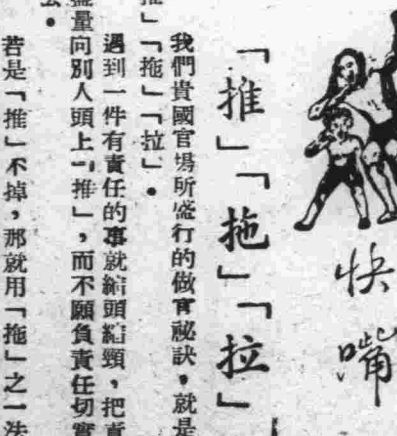 快嘴
「推」「拖」「拉」
我們貴國官場所盛行的做官祕訣，就是
推」「拖」「拉」。
遇到一件有責任的事就縮頭縮頸，把責
盡量向別人頭上「推」，而不願負責任切實
若是「推」不掉，那就用「拖」之一法